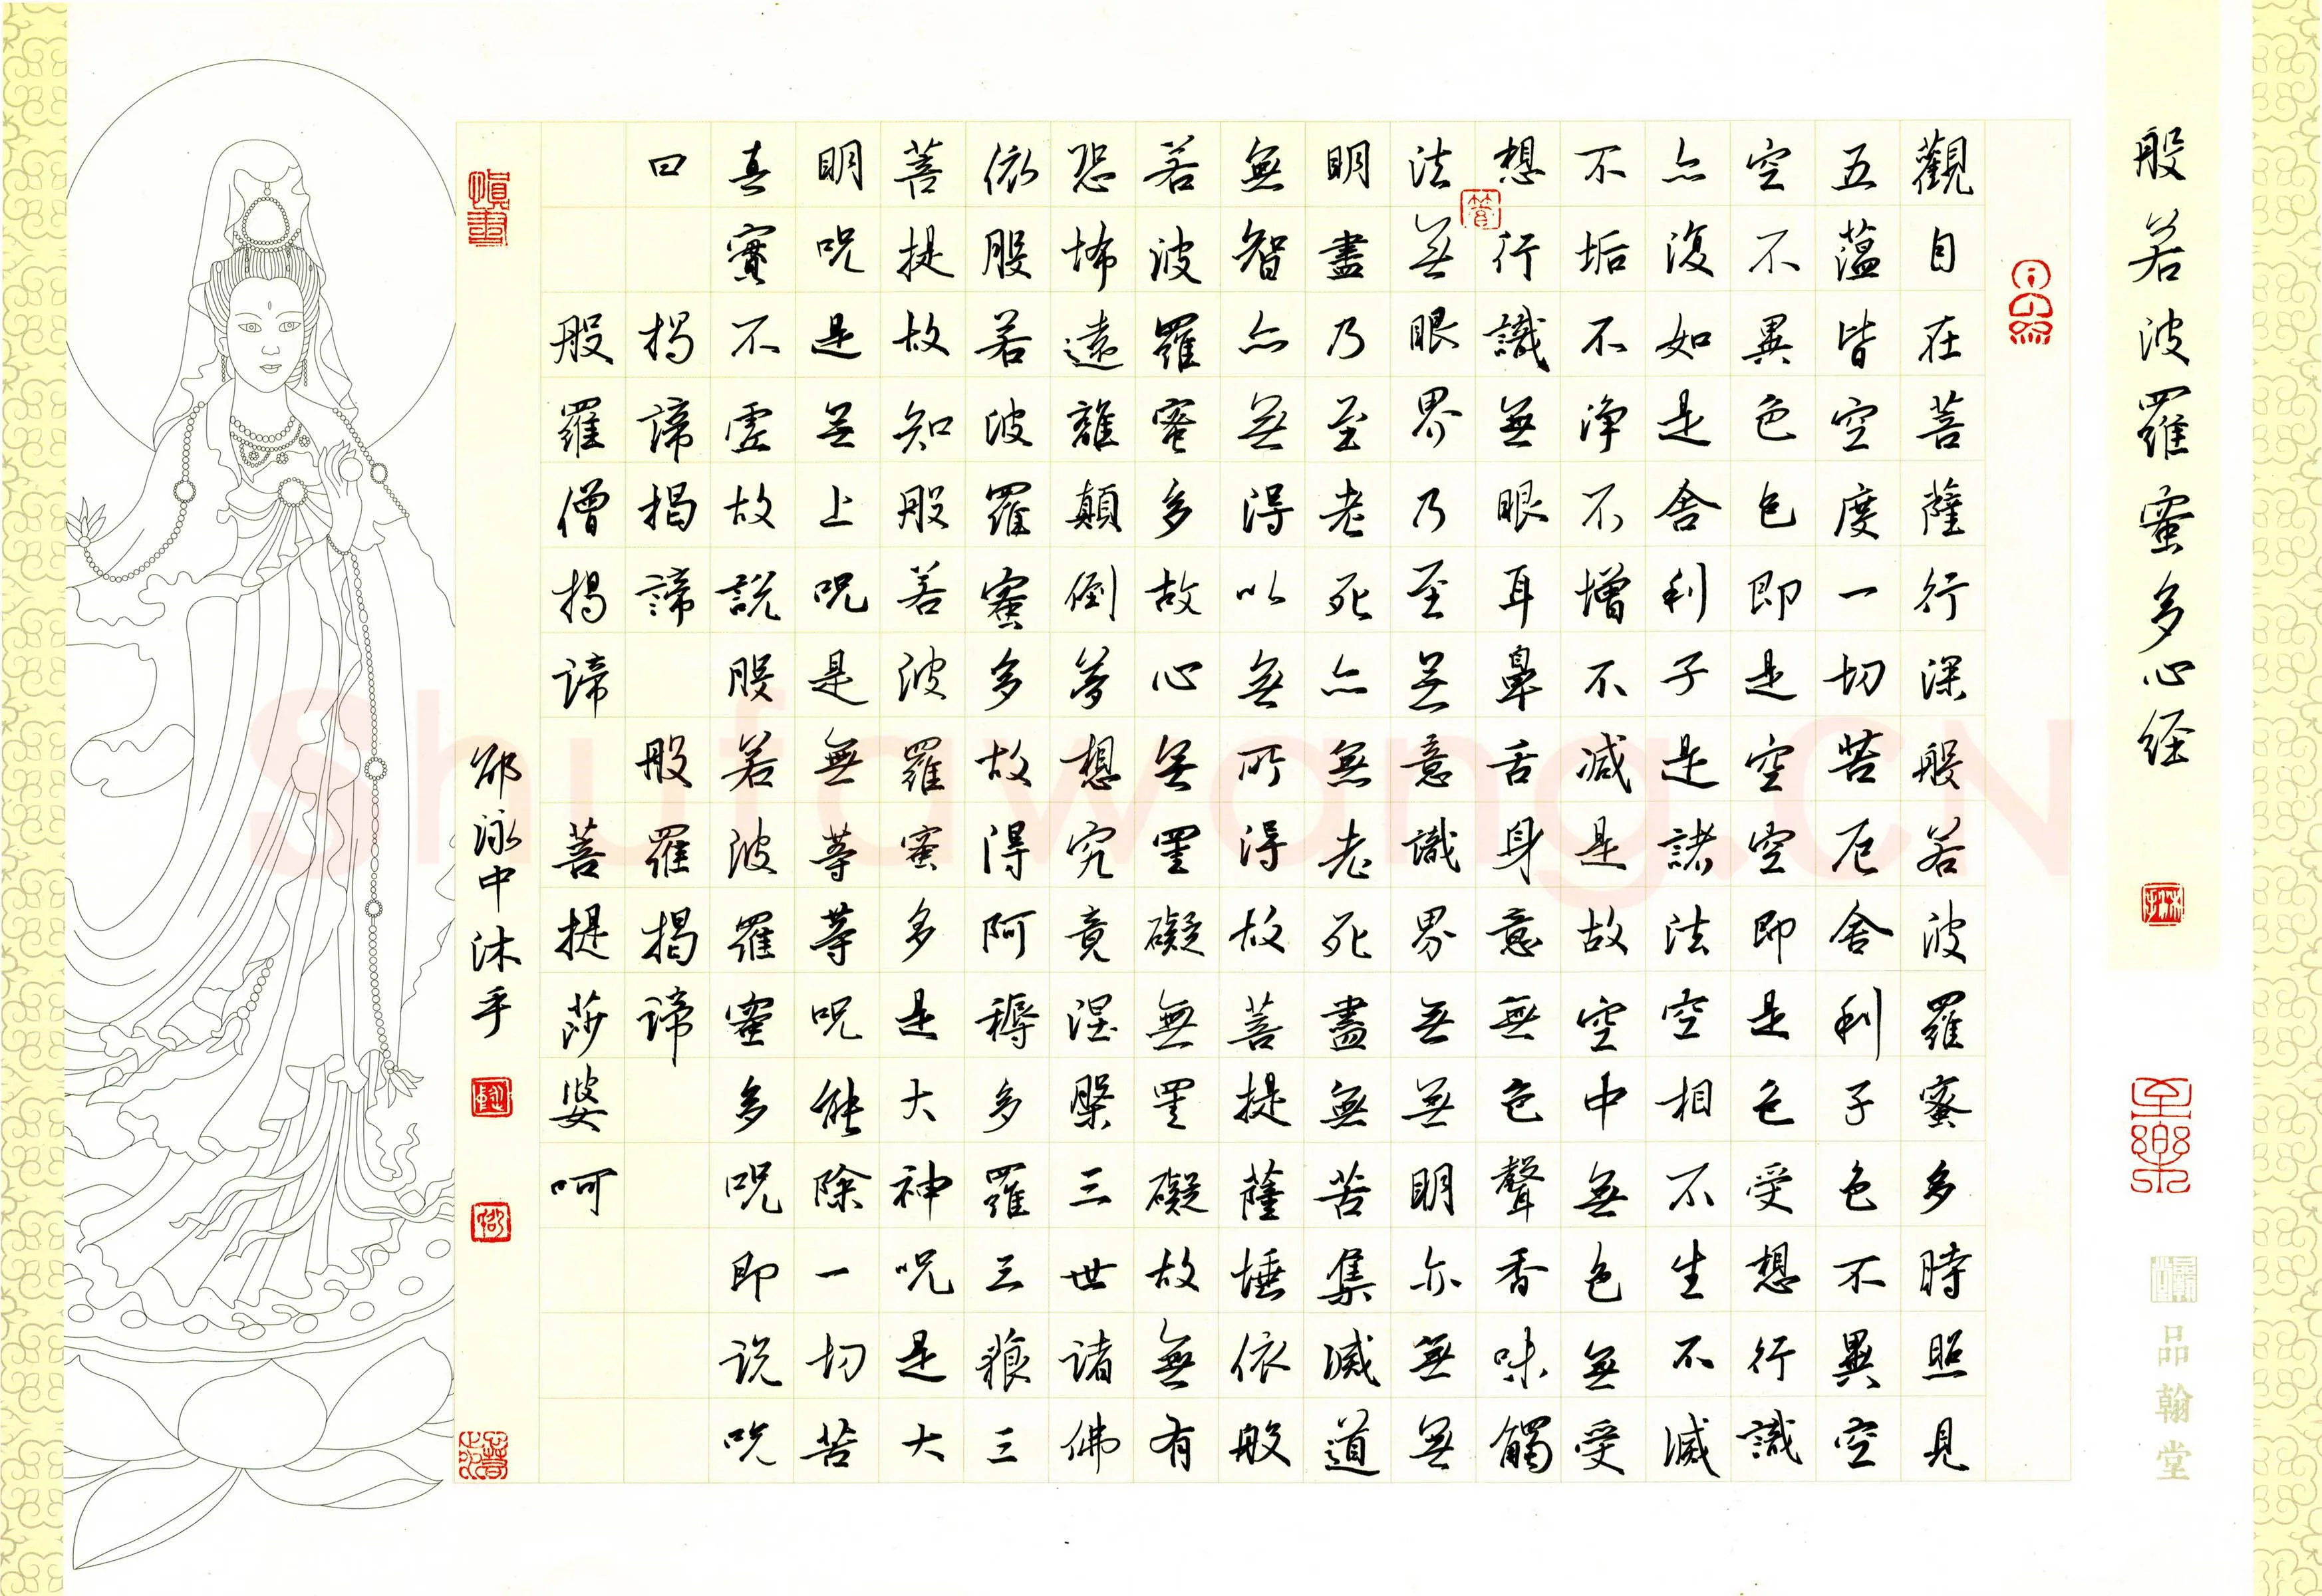 般若波羅蜜多心经
觀自在菩薩行深般若波羅蜜多時照見
五蕴皆空度一切苦厄舍利子色不異空
空不異色色即是空空即是色受想行識
亦復如是舍利子是諸法空相不生不滅
不垢不净不增不减是故空中無色無受
想行識無眼耳鼻舌身意無色聲香味觸
法無眼界乃至無意識界無無明亦無無
明盡乃至老死亦無老死盡無苦集滅道
無智亦無得以無所得故菩提薩埵依般
若波羅蜜多故心無罣礙無罣礙故無有
恐怖遠離顛倒夢想究竟涅槃三世諸佛
依般若波羅蜜多故得阿耨多羅三藐三
菩提故知般若波羅蜜多是大神咒是大
明咒是無上咒是無等等咒能除一切苦
真實不虛故說般若波羅蜜多咒即说咒
曰 揭諦揭諦 般羅揭諦
般羅僧揭諦 菩提莎婆呵
邵泳中沐手
至樂
品翰堂
Shufawang.CN